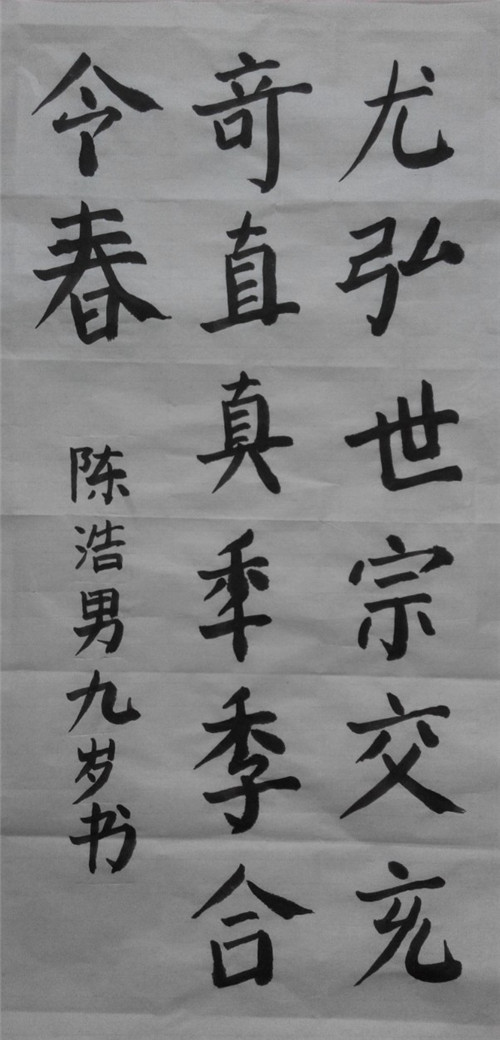 尤弘世宗交充
竒直真秊季合
今春
陈浩男九岁书